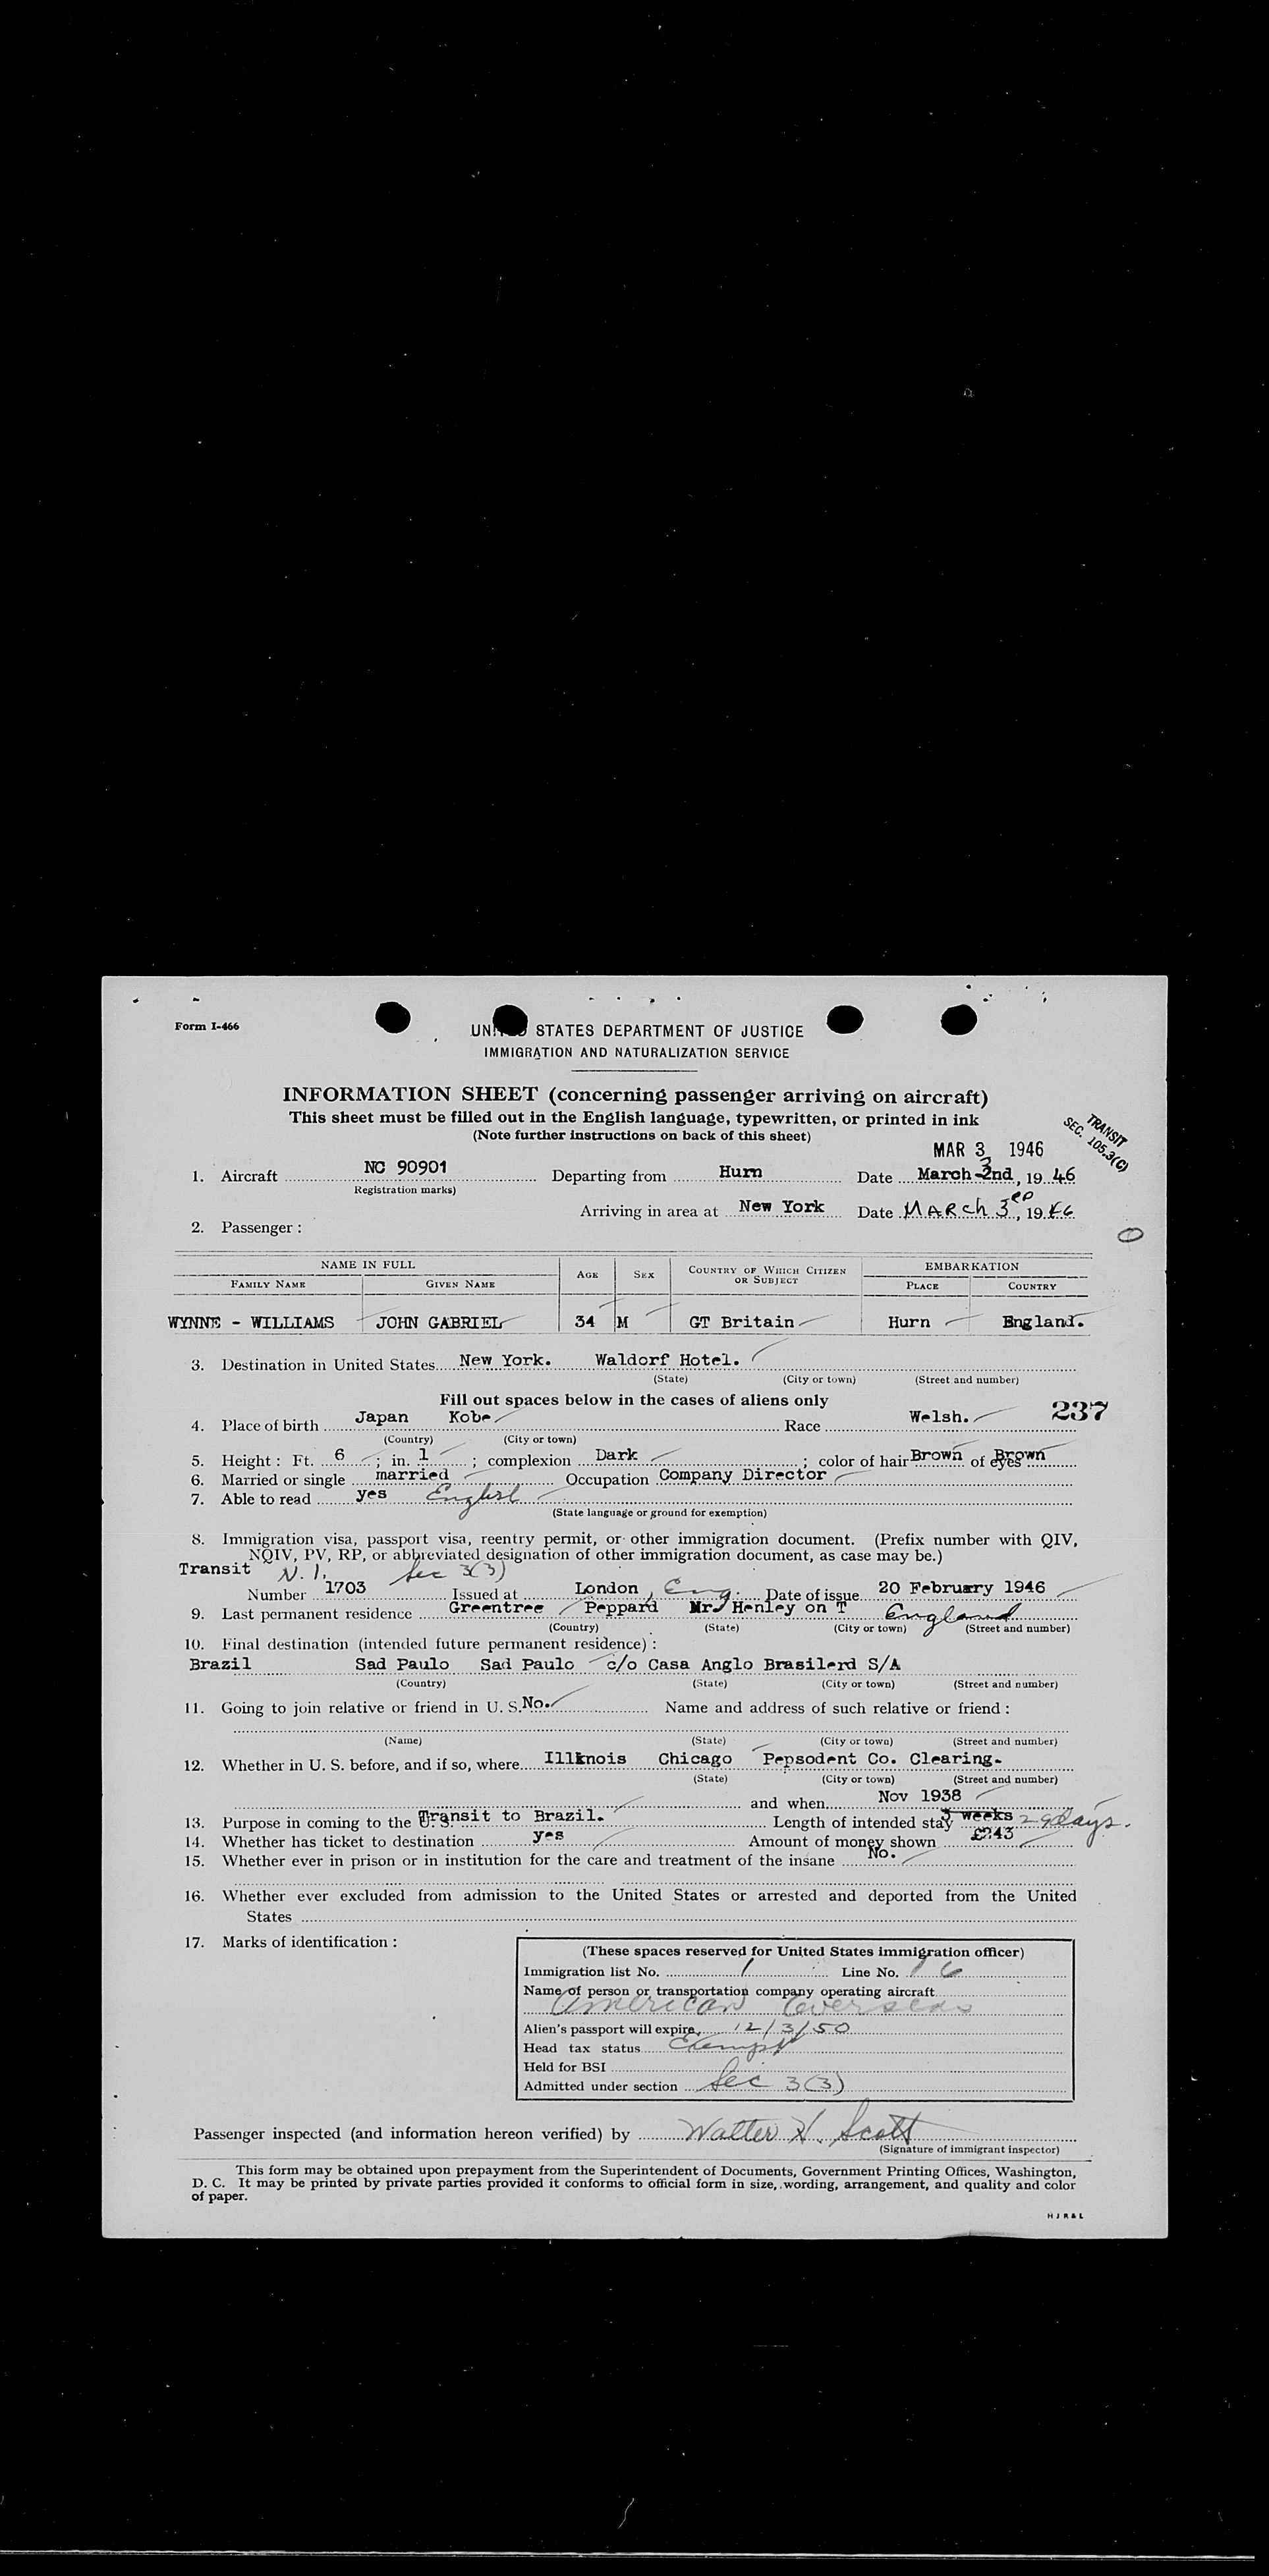 Form I-466
UNITED STATES DEPARTMENT OF JUSTICE
IMMIGRATION AND NATURALIZATION SERVICE
INFORMATION SHEET (concerning passenger arriving on aircraft)
This sheet must be filled out in the English language, typewritten, or printed in ink
(Note further instructions on back of this sheet)
TRANSIT
SEC. 105.3(C)
MAR 3 1946
1. Aircraft NC 90901 Departing from Hurn Date March 2nd, 19 46
Registration marks)
Arriving in area at New York Date MARCH 3RD, 19 46
2. Passenger :
NAME IN FULL AGE SEX COUNTRY OF WHICH CITIZEN OR SUBJECT EMBARKATION
FAMILY NAME GIVEN NAME PLACE COUNTRY
WYNNE - WILLIAMS JOHN GABRIEL 34 M GT Britain Hurn England.
3. Destination in United States New York. Waldorf Hotel.
(State) (City or town) (Street and number)
Fill out spaces below in the cases of aliens only
237
4. Place of birth Japan Kobe Race Welsh.
(Country) (City or town)
5. Height : Ft. 6 ; in. 1 ; complexion Dark ; color of hair Brown of eyes Brown
6. Married or single married Occupation Company Director
7. Able to read yes English
(State language or ground for exemption)
8. Immigration visa, passport visa, reentry permit, or other immigration document. (Prefix number with QIV,
NQIV, PV, RP, or abbreviated designation of other immigration document, as case may be.)
Transit N. I. Sec 3(3)
Number 1703 Issued at London, Eng. Date of issue 20 February 1946
9. Last permanent residence Greentree Peppard Mr Henley on T England
(Country) (State) (City or town) (Street and number)
10. Final destination (intended future permanent residence) :
Brazil Sad Paulo Sad Paulo c/o Casa Anglo Brasilerd S/A
(Country) (State) (City or town) (Street and number)
11. Going to join relative or friend in U. S. No. Name and address of such relative or friend :
(Name) (State) (City or town) (Street and number)
12. Whether in U. S. before, and if so, where Illknois Chicago Pepsodent Co. Clearing.
(State) (City or town) (Street and number)
and when Nov 1938
13. Purpose in coming to the U. S. Transit to Brazil. Length of intended stay 3 weeks 29 days.
14. Whether has ticket to destination yes Amount of money shown £243
15. Whether ever in prison or in institution for the care and treatment of the insane No.
16. Whether ever excluded from admission to the United States or arrested and deported from the United
States
17. Marks of identification :
(These spaces reserved for United States immigration officer)
Immigration list No. 1 Line No. 16
Name of person or transportation company operating aircraft
American Overseas
Alien's passport will expire 12/3/50
Head tax status Exempt
Held for BSI
Admitted under section Sec 3(3)
Passenger inspected (and information hereon verified) by Walter H. Scott
(Signature of immigrant inspector)
This form may be obtained upon prepayment from the Superintendent of Documents, Government Printing Offices, Washington,
D. C. It may be printed by private parties provided it conforms to official form in size, wording, arrangement, and quality and color
of paper.
H J R & L